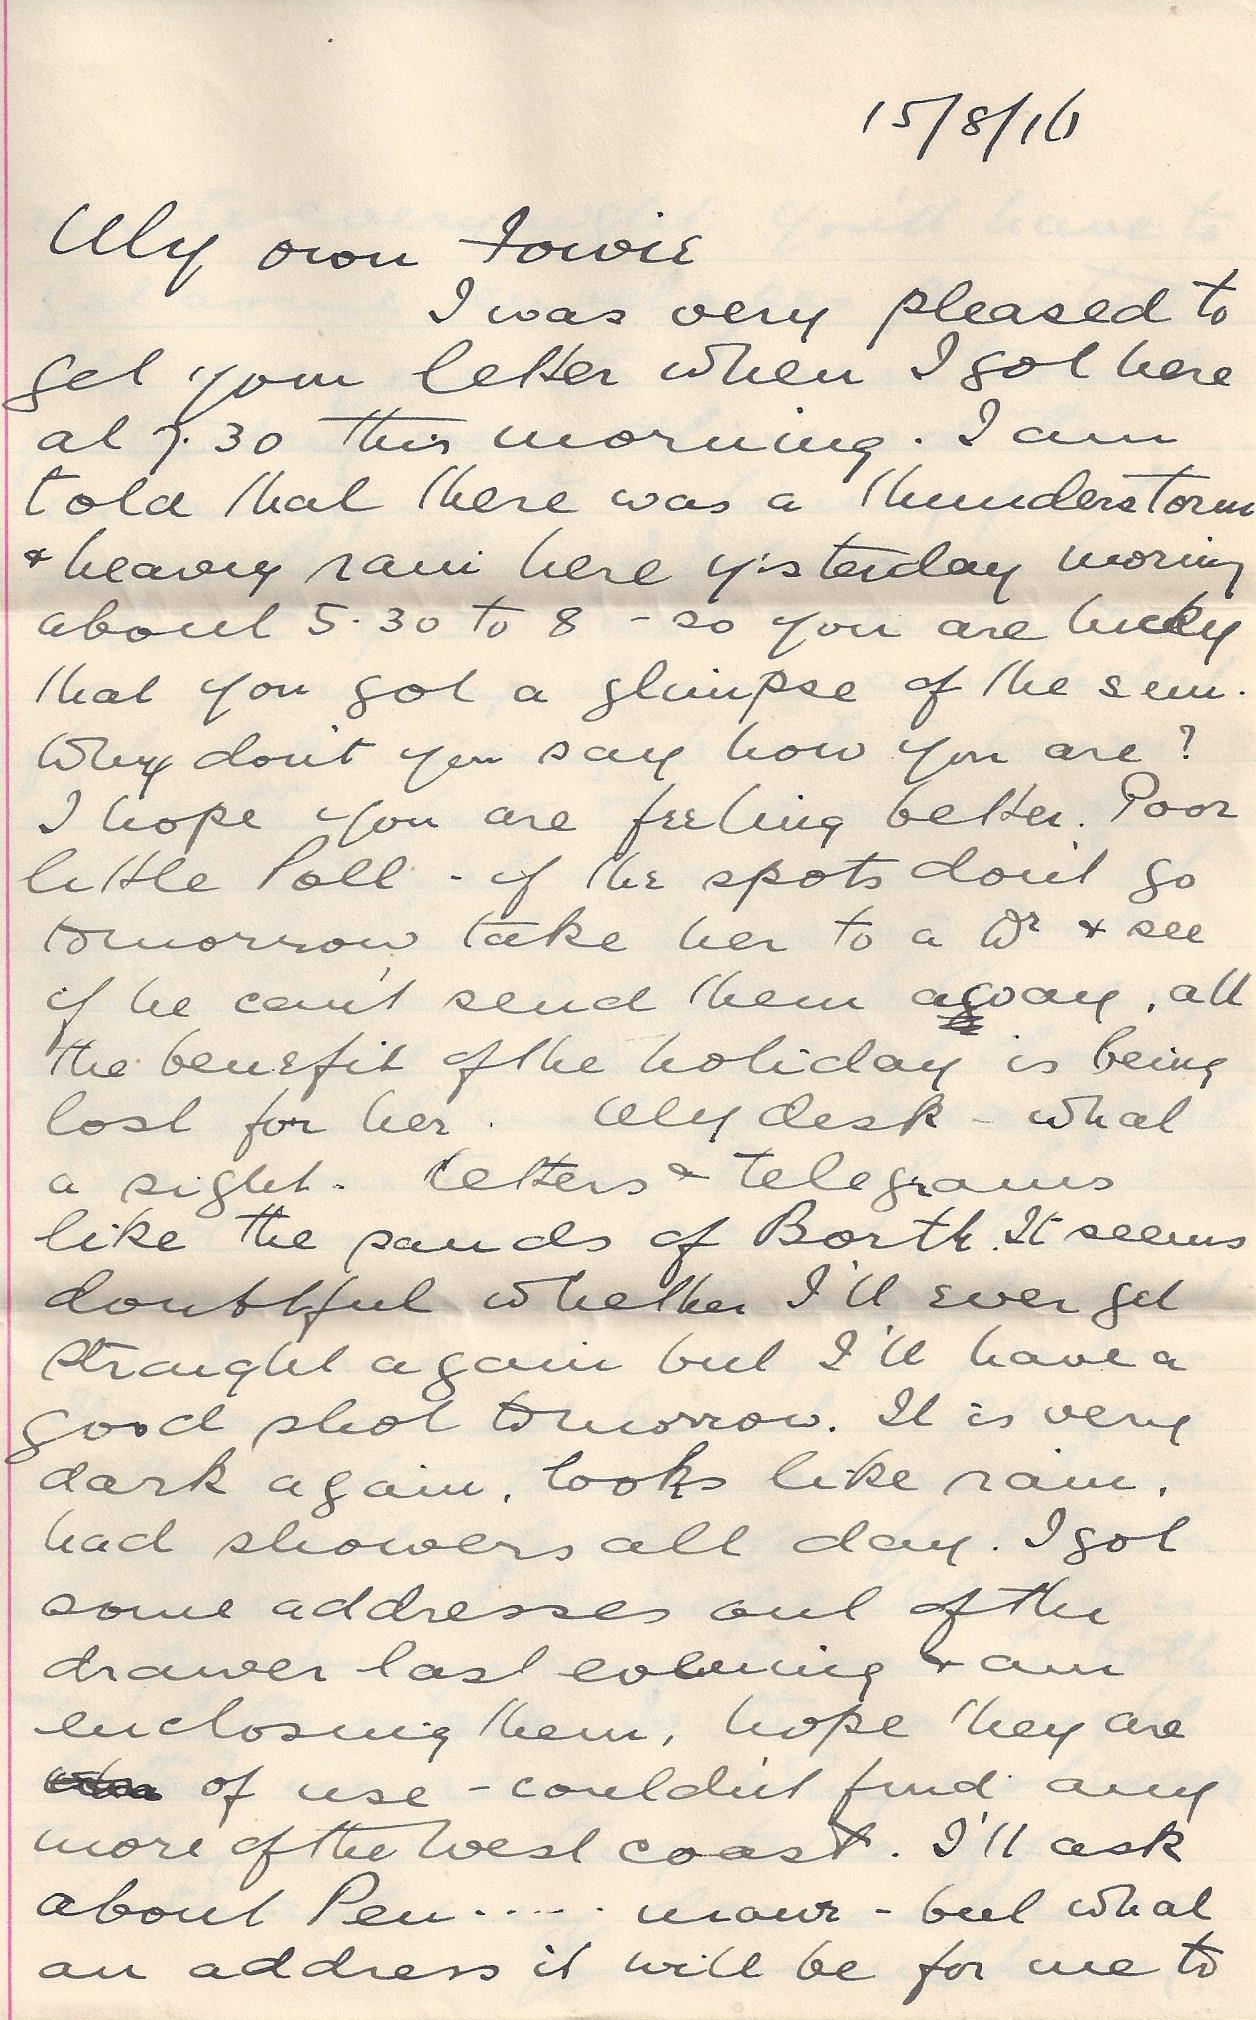 15/8/16
My own Fowie
I was very pleased to
get your letter when I got here
at 7.30 this morning. I am
told that there was a thunderstorm
& heavy rain here yesterday morning
about 5.30 to 8 - so you are lucky
that you got a glimpse of the sun.
Why don't you say how you are?
I hope you are feeling better. Poor
little Poll - if the spots don't go
tomorrow take her to a Dr & see
if he can't send them away, all
the benefit of the holiday is being
lost for her. My desk - what
a sight. Letters & telegrams
like the sands of Borth. It seems
doubtful whether I'll ever get
straight again but I'll have a
good shot tomorrow. It is very
dark again, looks like rain,
had showers all day. I got
some addresses out of the
drawer last evening & am
enclosing them, hope they are
of use - couldn't find any
more of the West coast. I'll ask
about Pen..... mawr - but what
an address it will be for me to